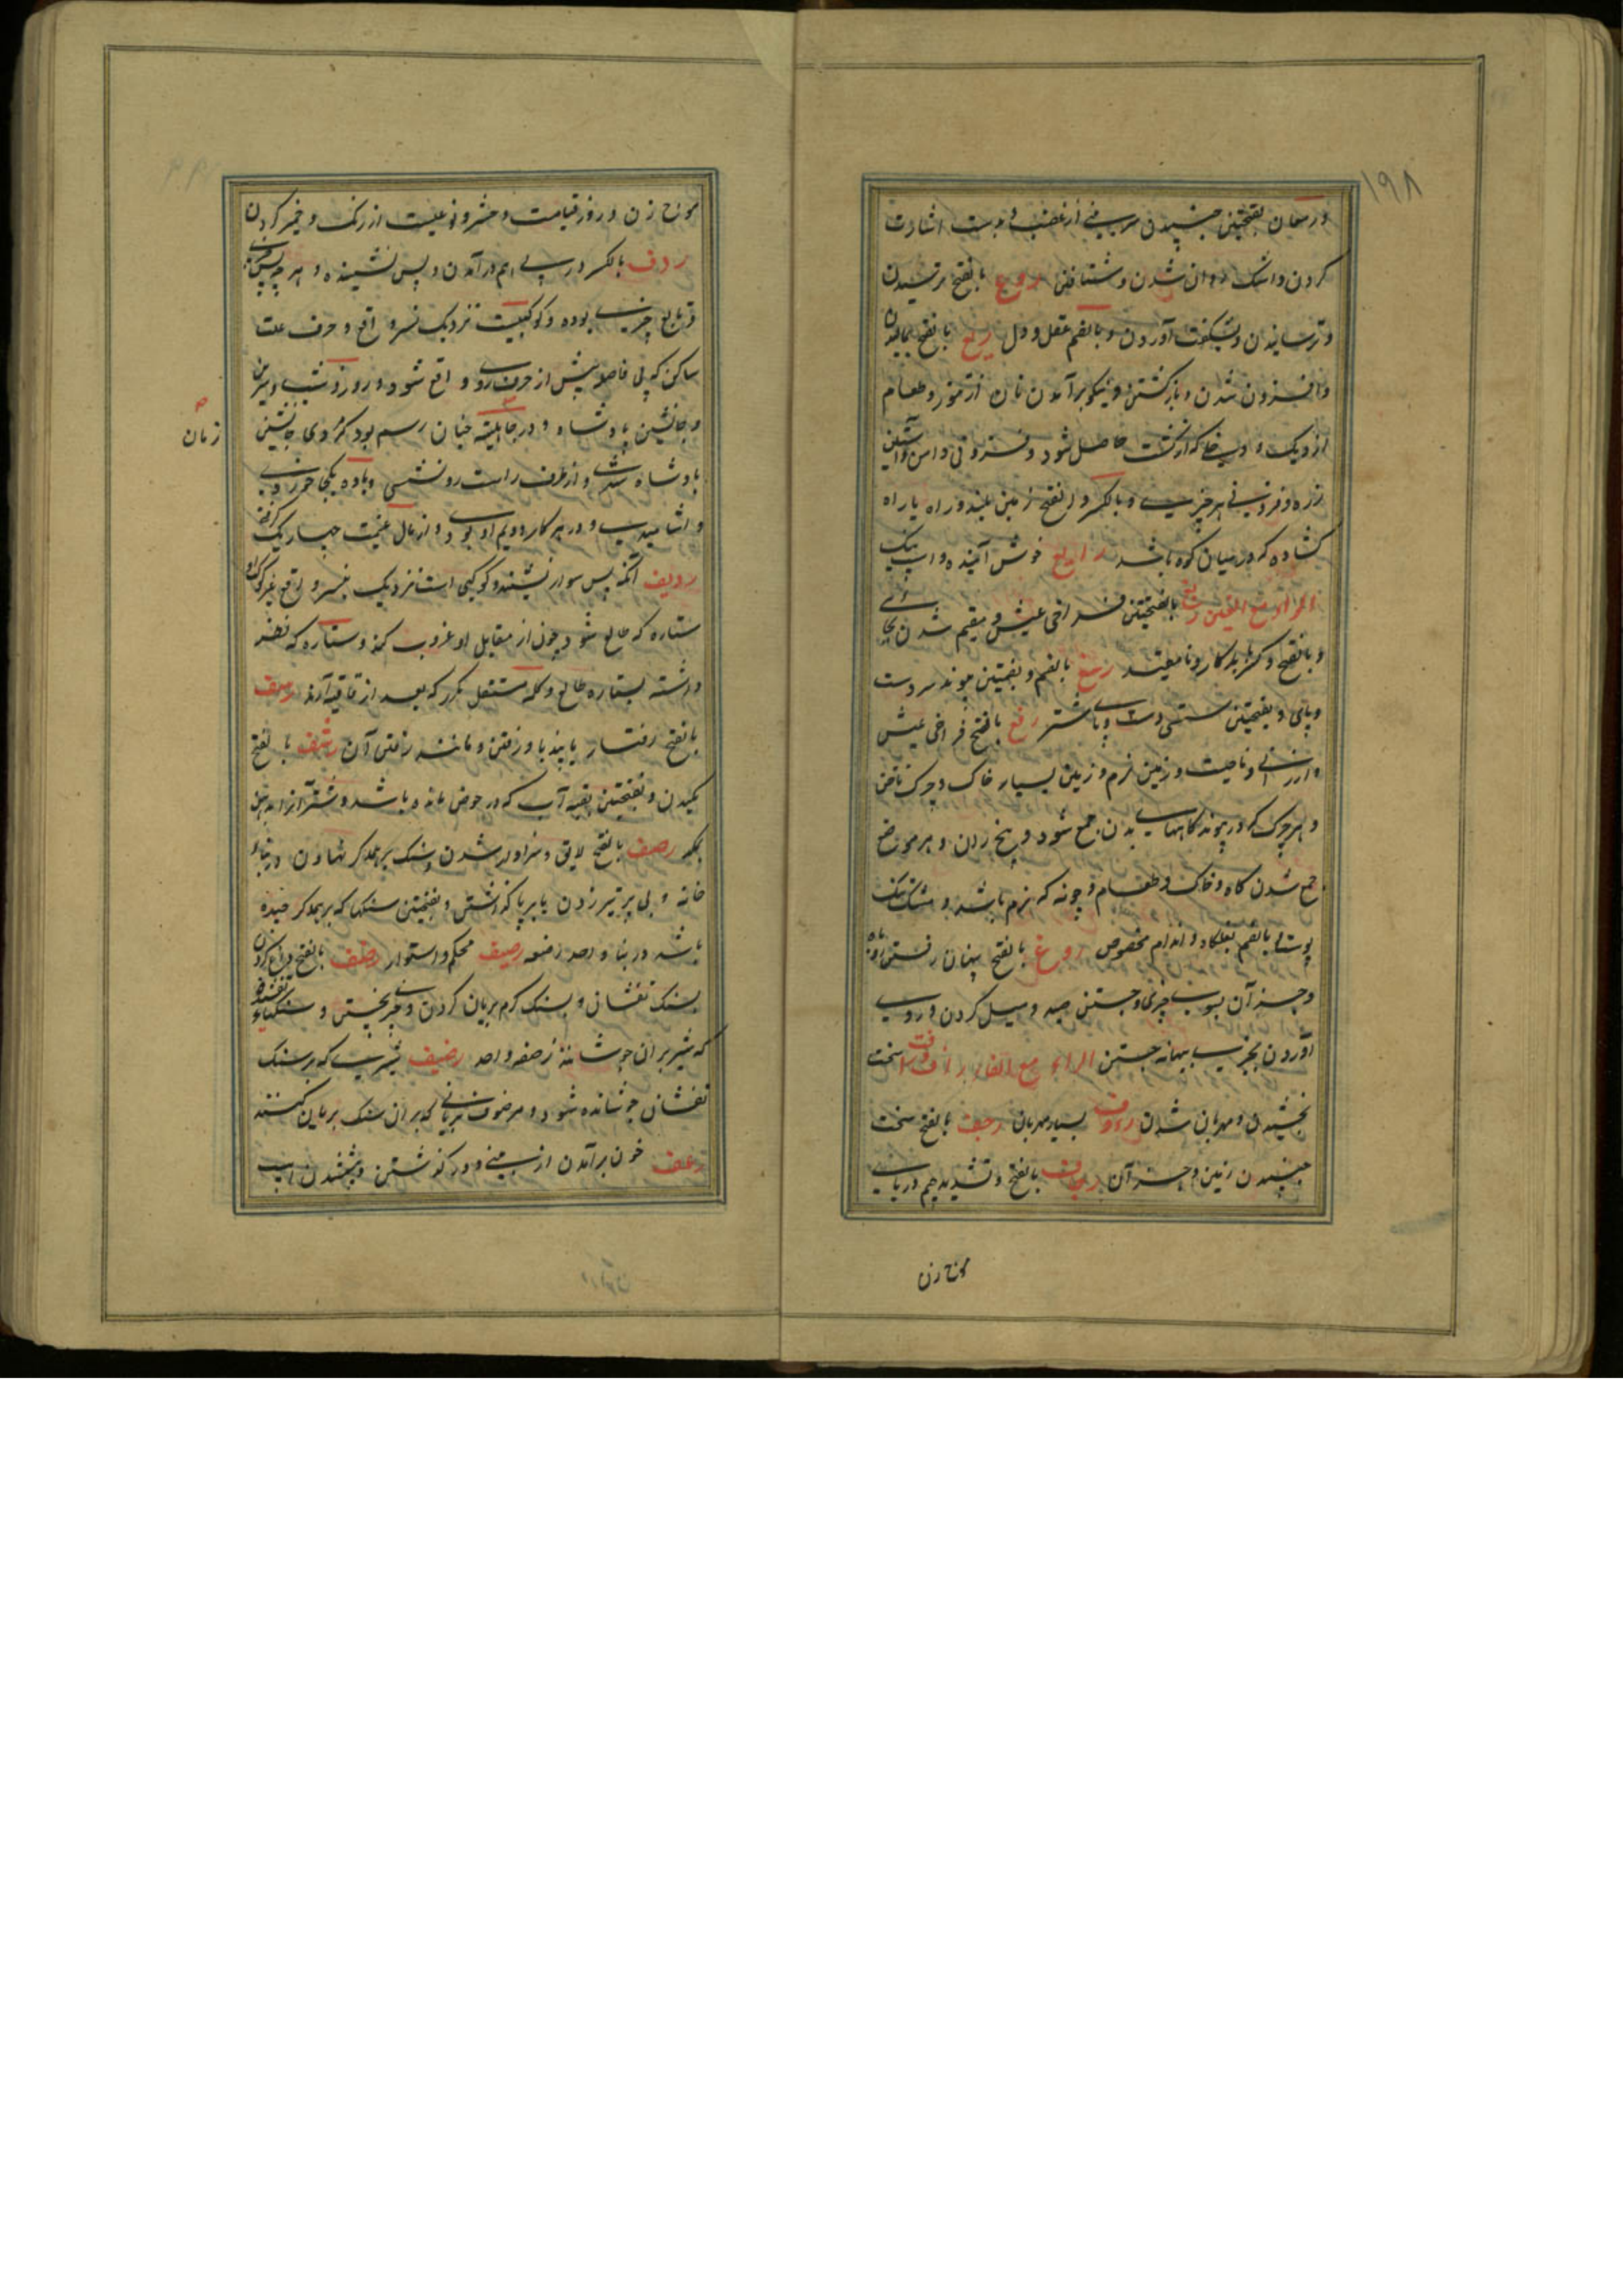 ۱۹۸
و رمعان بفتحتین جنبیدن سر بینی از غضب و بدست اشارت
کردن و اشک روان شدن و شتافتن روع بالفتح ترسیدن
و ترسانیدن و بشکفت آوردن و بالضم عقل و دل ریع بالفتح بالیدن
و افزون شدن و بازگشتن و نیکو برآمدن نان از تنور و طعام
از دیک و دخلی که از کشت حاصل شود و فزونی دامن و آستین
زره و فزونی هر چیزی و بالکسر و الفتح زمین بلند و راه یا راه
کشاده که در میان کوه باشد رایع خوش آینده و اسب نیک
الراء مع الغین بالفتحتین فراخی عیش و مقیم شدن بجای
و بالفتح و کسر با بدکار و نامعتمد رسغ بالضم و بضمتین پیوند سر دست
و پای و بفتحتین سستی دست و پای شتر رفغ بالفتح فراخی عیش
و ارزانی و ناحیت و زمین نرم و زمین بسیار خاک و چرک ناخن
و هر چرک که در پیوندگاههای بدن جمع شود و بیخ ران و هر موضع
جمع شدن کاه و خاک و طعام و چونه که نرم باشد و مشک تنک
پوست و بالضم بغلگاه و اندام مخصوص روغ بالفتح پنهان رفتن روباه
و جز آن بسوی چیزی و جستن صید و میل کردن و روی
آوردن بچیزی بیهانه جستن الراء مع الفاء رأفت سخت
بخشیدن و مهربان شدن رءوف بسیار مهربان رجف بالفتح سخت
جنبیدن زمین و جز آن رجاف بالفتح و تشدید جیم دریای
موج زن
موج زن و روز قیامت و حشر و نوعیست از رنگ و خمیر کردن
ردف بالکسر در پی هم در آمدن و پس نشیننده و هر چه پس چیزی
و تابع چیزی بوده و کوکبیست نزدیک نسر واقع و حرف علت
ساکن که بی فاصله پیش از حرف روی واقع شود و روز و شب و سرین
و جانشین پادشاه و در جاهلیت چنان رسم بود که مردی جانشین
زمان
پادشاه شدی و از طرف راست او نشستی و باده یکجا خوردی
و اشامیدی و در هر کار دویم او بودی و از مال غنیمت چهار یک گرفتی
ردیف آنکه پس سوار نشیند و کوکبی است نزدیک نسر واقع
ستاره که طالع شود چون از مقابل او غروب کند و ستاره که نظر
داشته بستاره طالع و کلمه مستقل مکرر که بعد از قافیه آرند رسف
بالفتح رفتار با پند یا و رفتن و مانند رفتن آن رشف بالفتح
مکیدن و بفتحتین بقیه آب که در حوض مانده باشد و شتر آنرا بدهن
بمکد رصف بالفتح لایق و سزاوار شدن و سنگ بر همدگر نهادن در بنای
خانه و پی بر تیر زدن یا بر پا گذاشتن و بفتحتین سنگها که بر همدکر چیده
باشد در بنا واحد رصفه رصیف محکم و استوار رضف بالفتح داغ کردن
بسنگ تفشان و بسنگ گرم بریان کردن و چیزی پختن و سنگهای تفسیده
که شیر بران جوشانند رضفه واحد رضیف شیری که بر سنگ
تفشان جوشانده شود و مرضوف بریانی که بران سنگ بریان کنند
رعف خون برآمدن از بینی و در گذشتن و پیش شدن اسب